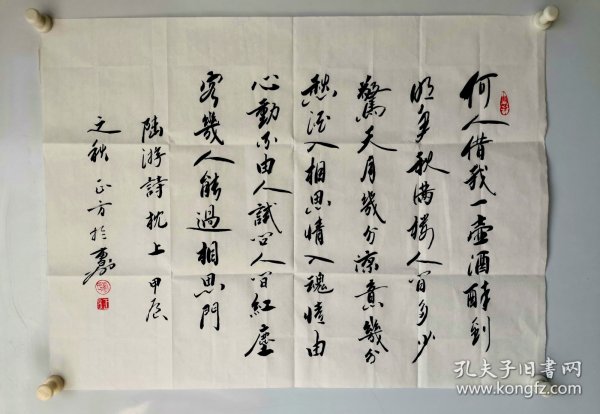 何人借我一壺酒醉到
明多秋满樓人間多少
驚天月幾分涼意幾分
愁酒入相思情入魂情由
心動不由人試問人間紅塵
客幾人能過相思門
陸游詩枕上 甲辰
之秋 正方於
孔夫子旧书网
www.kongfz.com